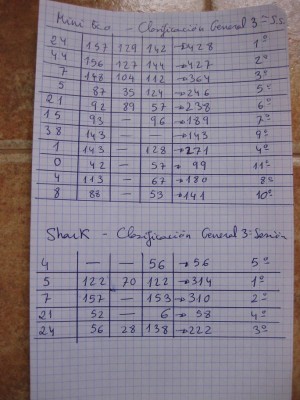 Mini - Clasificación General 3ª
24 157 129 142 → 428 1º
44 156 127 144 → 427 2º
7 148 104 112 → 364 3º
5 87 35 124 → 246 5º
21 92 89 57 → 238 6º
15 93 — 96 → 189 7º
38 143 — — → 143 9º
1 143 — 128 → 271 4º
0 42 — 57 → 99 11º
4 113 — 67 → 180 8º
8 88 — 53 → 141 10º
Shark - Clasificación General 3ª Sesión
4 — — 56 → 56 5º
5 122 70 122 → 314 1º
7 157 — 153 → 310 2º
21 52 — 6 → 58 4º
24 56 28 138 → 222 3º